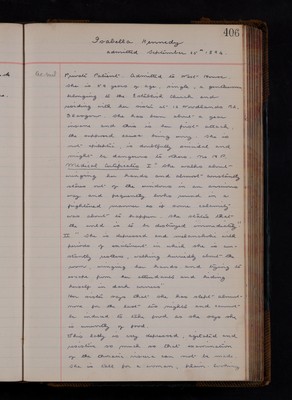 406
Isabella Kennedy
admitted September 10th 1896
Private Patient. Admitted to West House
She is 54 years of age, single, a gentlewoman
belonging to the Established Church and
residing with her sister at 12 Woodlands
Glasgow. She has been about a year
insane and this is her first attack,
the supposed cause being She is
not epileptic, is doubtfully suicidal and
might be dangerous to others.
Medical Certificates I "She walks about
wringing her hands and almost constantly
stares out of the windows in an anxious
way and frequently looks round in a
frightened manner as if some calamity
was about to happen. She states that
the world is to be destroyed immediately"
II "She is depressed and melancholic with
periods of excitement in which she is con-
stantly restless, walking hurriedly about the
room, wringing her hands and trying to
escape from her attendants and hiding
herself in dark corners"
Her sister says that she has slept almost
none for the last six nights and cannot
be induced to take food as she says she
is unworthy of food.
This lady is very depressed, agitated and
resistive so much so that examination
of the thoracic organs can not be made
She is tall for a woman, looking